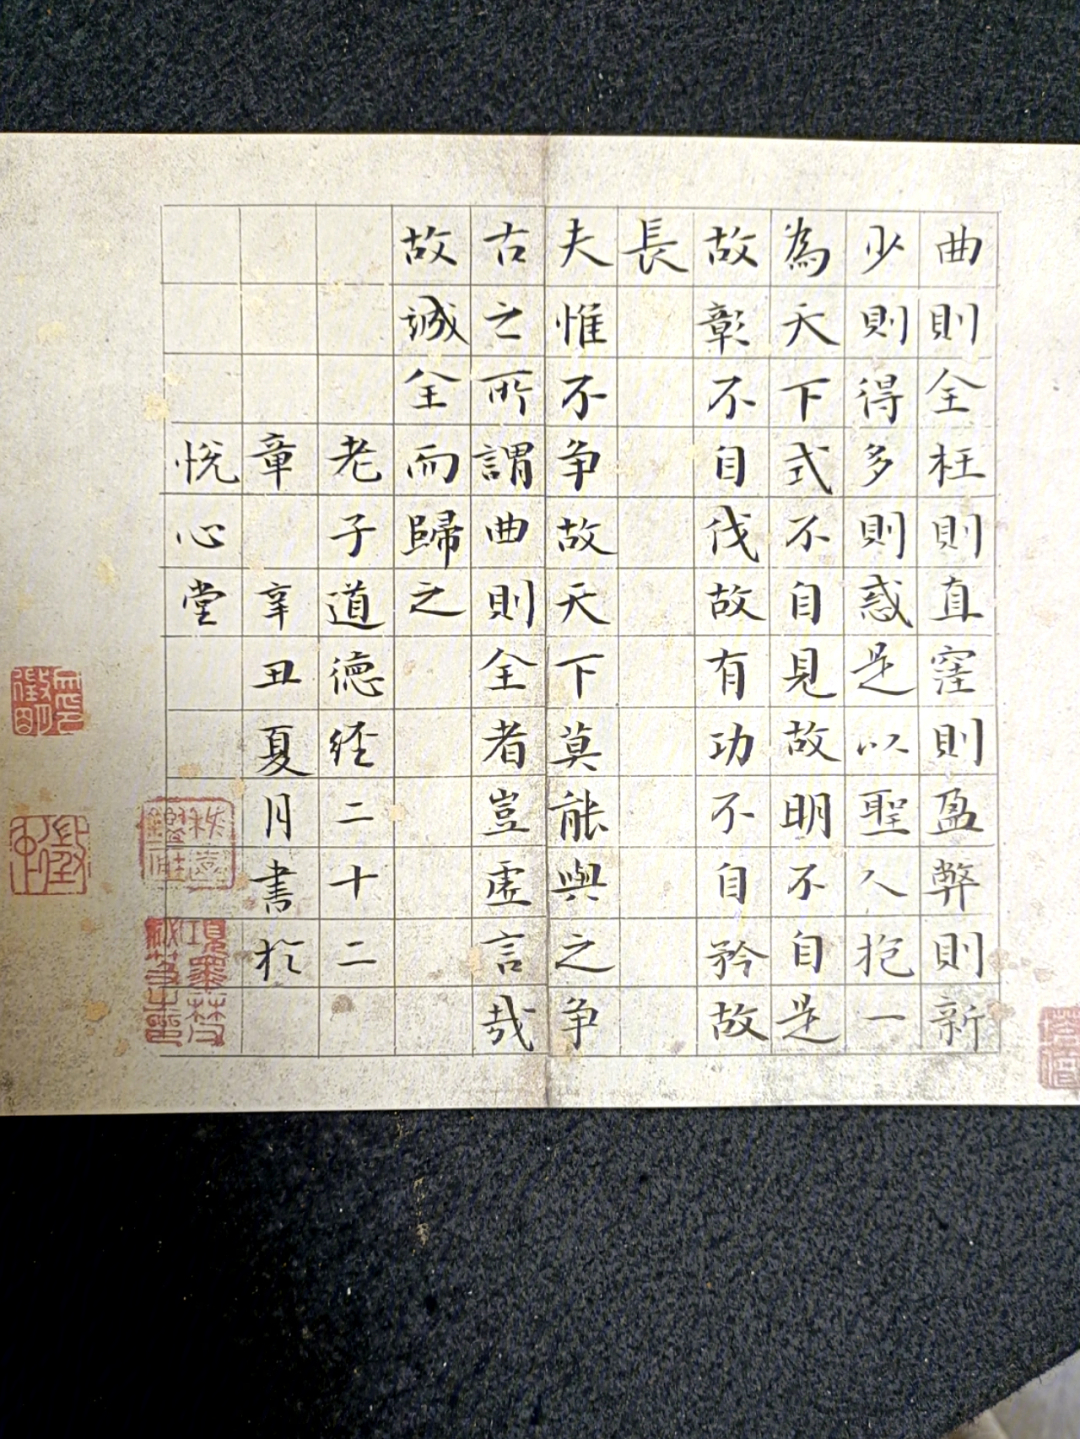 曲則全枉則直窪則盈弊則新
少則得多則惑是以聖人抱一
為天下式不自見故明不自是
故彰不自伐故有功不自矜故
長
夫惟不争故天下莫能與之争
古之所謂曲則全者豈虛言哉
故誠全而歸之
老子道德経二十二
章 辛丑夏月書於
悅心堂